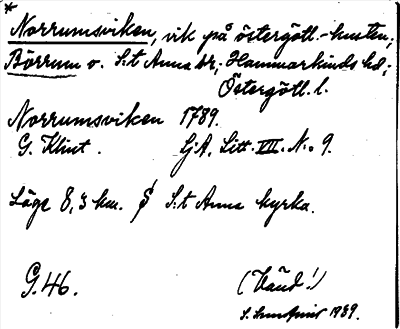 *
Norrumsviken, vik på östergötl.-kusten;
Börrum o. S:t Anna sr; Hammarkinds hd;
Östergötl. l.
Norrumsviken 1789.
G. Klint. SjA. Litt. VII. N:o 9.
Läge 8,3 km. S. S:t Anna kyrka.
G.46. (Vänd!)
S. 1939.